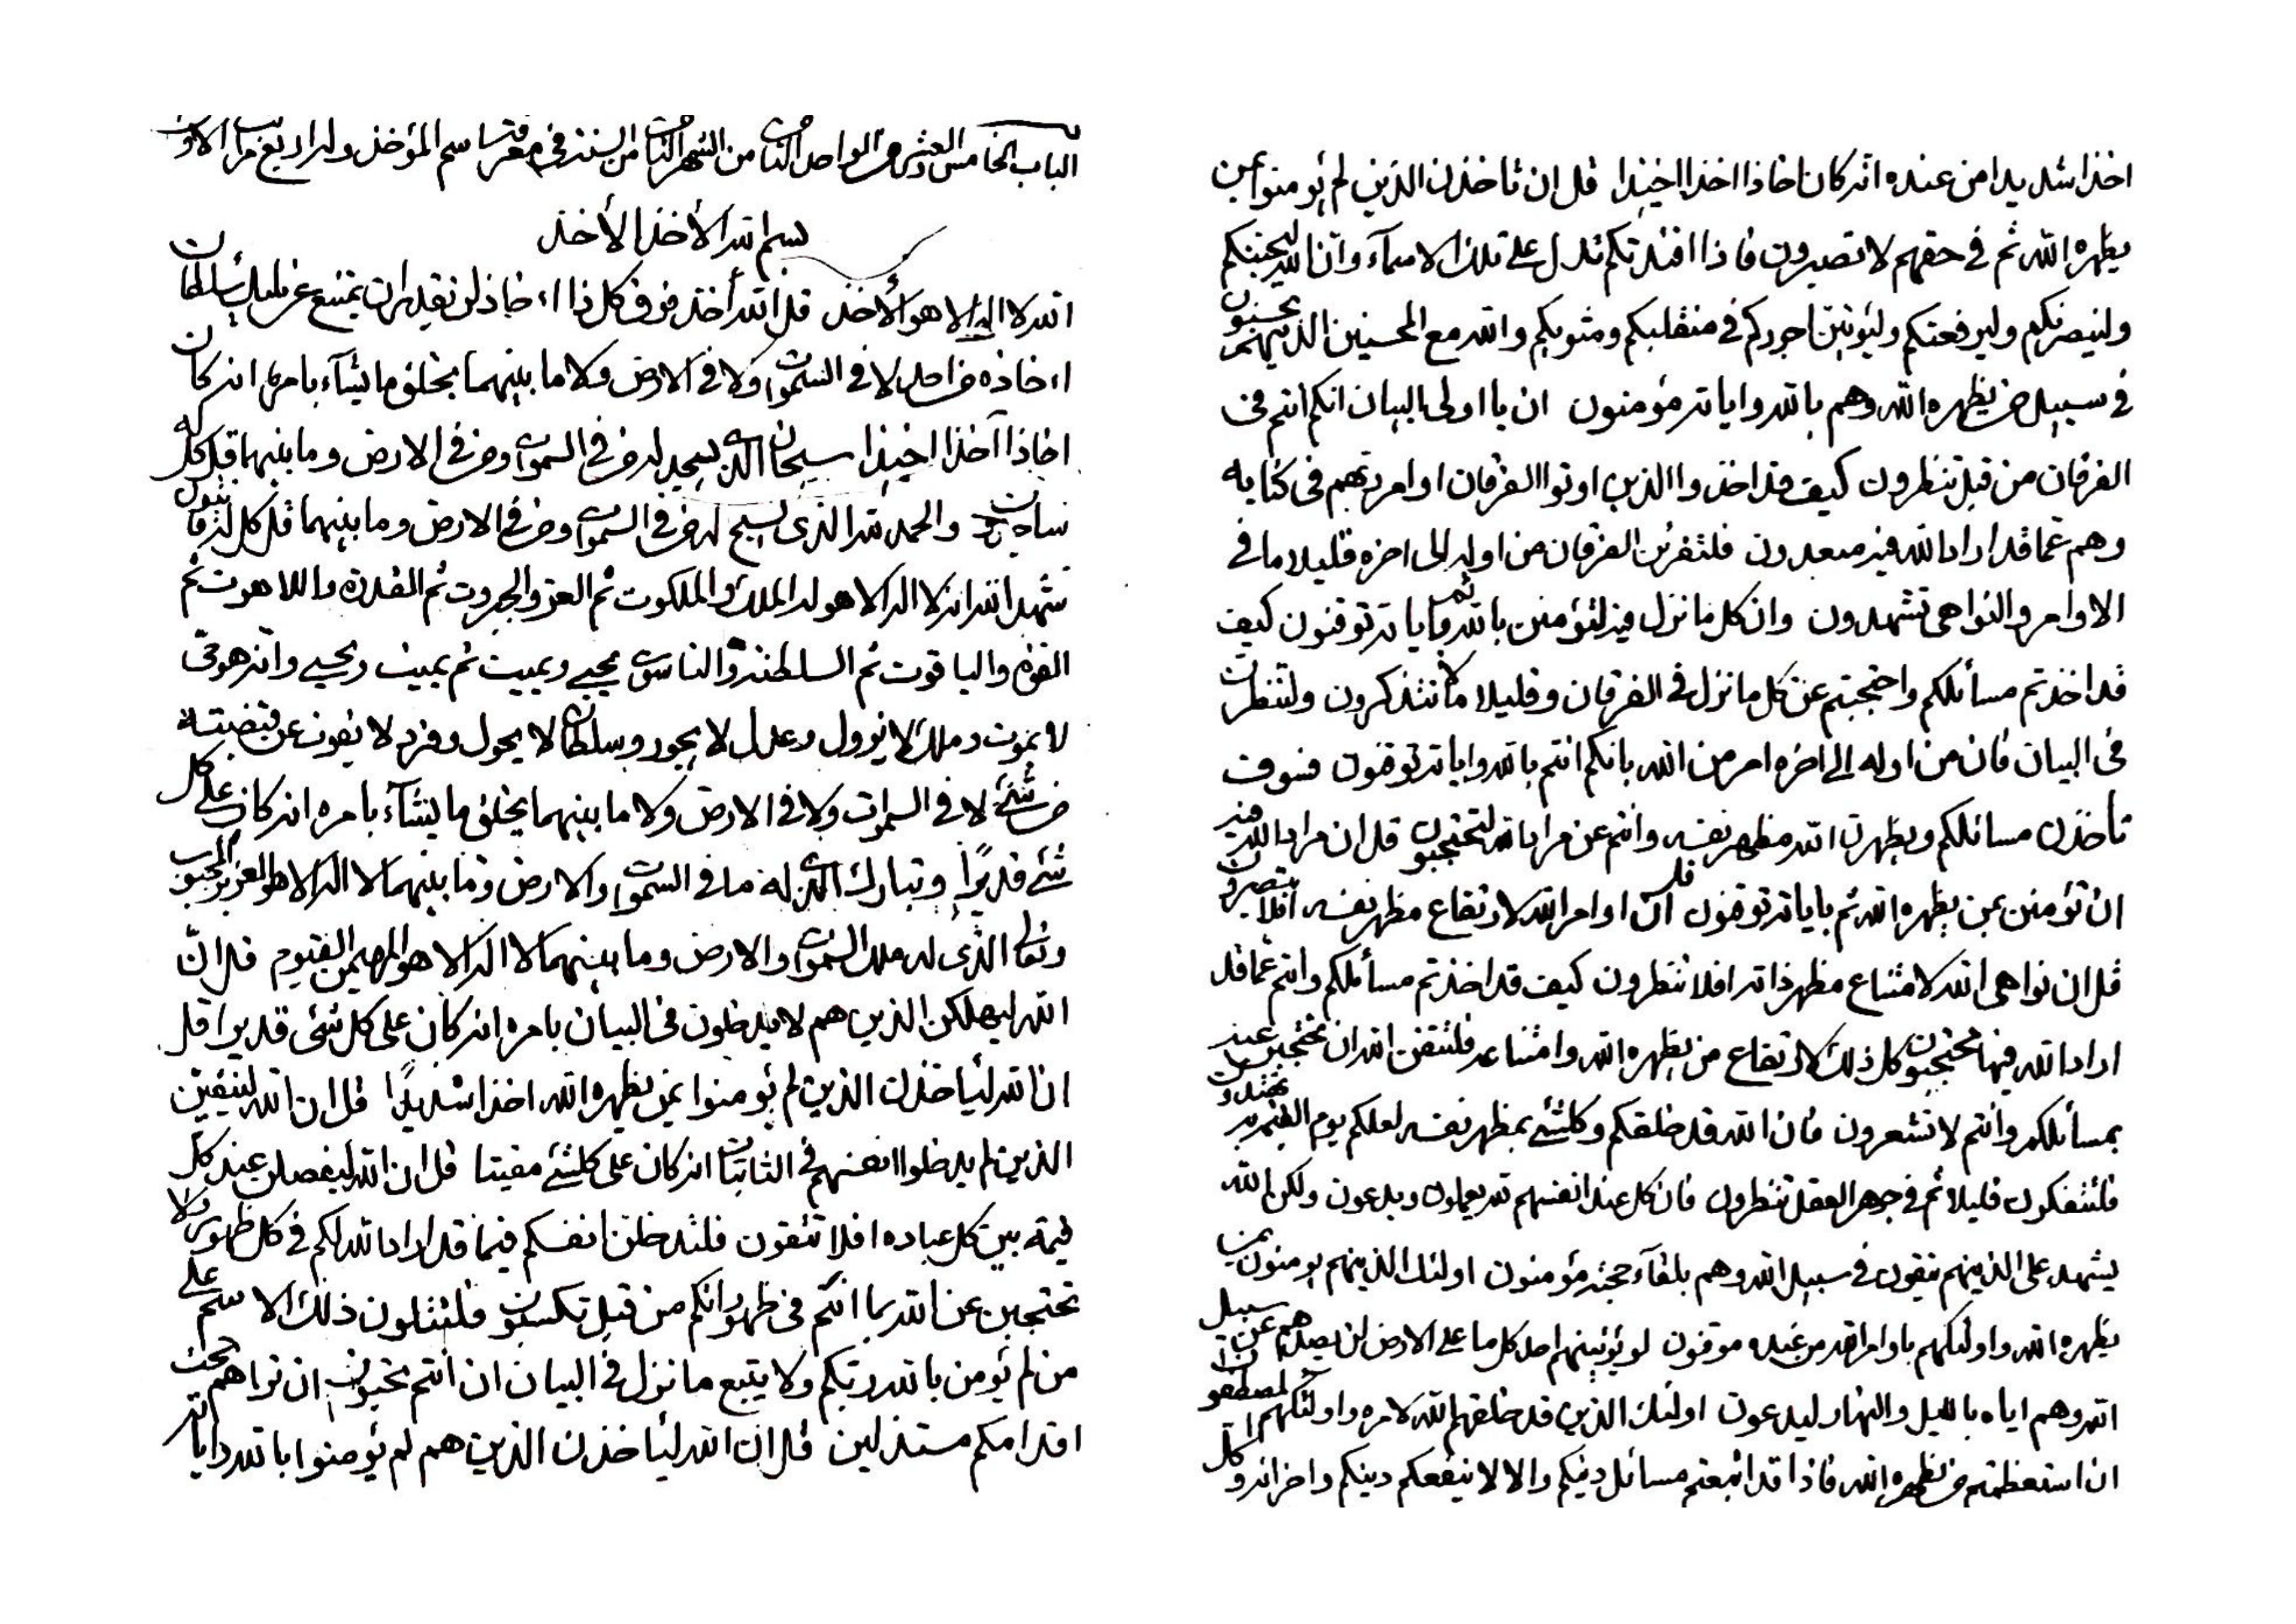 الباب الخامس والعشر من الواحد الثامن من الشهر الثامن من السنة في معرفة اسم المؤخذ وله اربع مراتب الاول
بسم الله الأخذ الأخذ
الله لا اله الا هو الأخذ قل الله أخذ فوق كل ذا اءخاذ لن يقدر ان يمتنع عن مليك سلطان
اءخاذه من احد لا في السموات ولا في الارض ولا ما بينهما يخلق ما يشاء بامره انه كان
اخاذا آخذا اخيذا سبحان الذي يسجد له من في السموات ومن في الارض وما بينهما قل كل له
ساجدون والحمد لله الذي يسبح له من في السموات ومن في الارض وما بينهما قل كل له قانتون
شهد الله انه لا اله الا هو له الملك والملكوت ثم العز والجبروت ثم القدرة واللاهوت ثم
القوة والياقوت ثم السلطنة والناسوت يحيي ويميت ثم يميت ويحيي وانه هو حي
لا يموت وملك لا يزول وعدل لا يجور وسلطان لا يحول وفرد لا يفوت عن قبضته
من شئ لا في السموات ولا في الارض ولا ما بينهما يخلق ما يشاء بامره انه كان على كل
شئ قديرا وتبارك الذي له ما في السموات والارض وما بينهما لا اله الا هو العزيز المحبوب
وتعالى الذي له ملك السموات والارض وما بينهما لا اله الا هو المهيمن القيوم قل ان
الله ليهلكن الذين هم لا يدخلون في البيان بامره انه كان على كل شئ قديرا قل
ان الله ليأخذن الذين لم يؤمنوا بمن يظهره الله اخذا شديدا قل ان الله ليفنين
الذين لم يدخلوا انفسهم في الثابتات انه كان على كلشئ مقيتا قل ان الله ليفصلن عند كل
قيمة بين كل عباده افلا تتقون فلتدخلن انفسكم فيما قد اراد الله لكم في كل ظهور ولا
تحتجبن عن الله بما انتم في ظهوراتكم من قبل تكسبون فلتتلون ذلك الاسم على
من لم يؤمن بالله ربكم ولا يتبع ما نزل في البيان ان انتم تحبون ان تراهم تحت
اقدامكم مستذلين قل ان الله ليأخذن الذين هم لم يؤمنوا بالله واياته
اخذا شديدا من عنده انه كان اخاذا اخذا اخيذا قل ان تأخذن الذين لم يؤمنوا بمن
يظهره الله ثم في حقهم لا تصبرون فاذا افئدتكم تدل على تلك الاسماء وان الله ليحبنكم
ولينصرنكم وليرفعنكم وليؤتين اجوركم في منقلبكم ومثويكم والله مع المحسنين الذينهم يحسنون
في سبيل من يظهره الله وهم بالله واياته مؤمنون ان يا اولى البيان انكم انتم في
الفرقان من قبل تنظرون كيف قد اخذوا الذين اوتوا الفرقان اوامر ربهم في كتابه
وهم عما قد اراد الله فيه مبعدون فلتقرئن الفرقان من اوله الى اخره قليلا ما في
الاوامر والنواهي تشهدون وان كل ما نزل فيه لتؤمنن بالله ثم باياته توقنون كيف
قد اخذتم مسائلكم واحتجبتم عن كل ما نزل في الفرقان وقليلا ما تتذكرون ولتنظرن
في البيان فان من اوله الى اخره امر من الله بانكم انتم بالله واياته توقنون فسوف
تأخذن مسائلكم ويظهرن الله مظهر نفسه وانتم عن مراد الله لتحتجبون قل ان مراد الله فيه
ان تؤمنن بمن يظهره الله ثم باياته توقنون قل ان اوامر الله لارتفاع مظهر نفسه افلا تبصرون
قل ان نواهي الله لامتناع مظهر ذاته افلا تنظرون كيف قد اخذتم مسائلكم وانتم عما قد
اراد الله فيها محتجبون كل ذلك لارتفاع من يظهره الله وامتناعه فلتتقن الله ان تحتجبن عنه
بمسائلكم وانتم لا تشعرون فان الله قد خلقكم وكلشئ بمظهر نفسه لعلكم يوم القيمة به تهتدون
فلتتفكرن قليلا ثم في جوهر العقل تنظرون فان كل عند انفسهم لله يعملون ويدعون ولكن الله
يشهد على الذينهم يتقون في سبيل الله وهم بلقاء حجته مؤمنون اولئك الذينهم يؤمنون بمن
يظهره الله واولئكهم باوامر الله من عنده موقنون لو يؤتينهم احد كل ما على الارض لن يصدهم عن سبيل
الله وهم اياه بالليل والنهار ليدعون اولئك الذين قد خلقهم الله لامره واولئكهم المصطفون
ان استعظمتم من يظهره الله فاذا قد اتبعتم مسائل دينكم والا لا ينفعكم دينكم واخر انه وكل